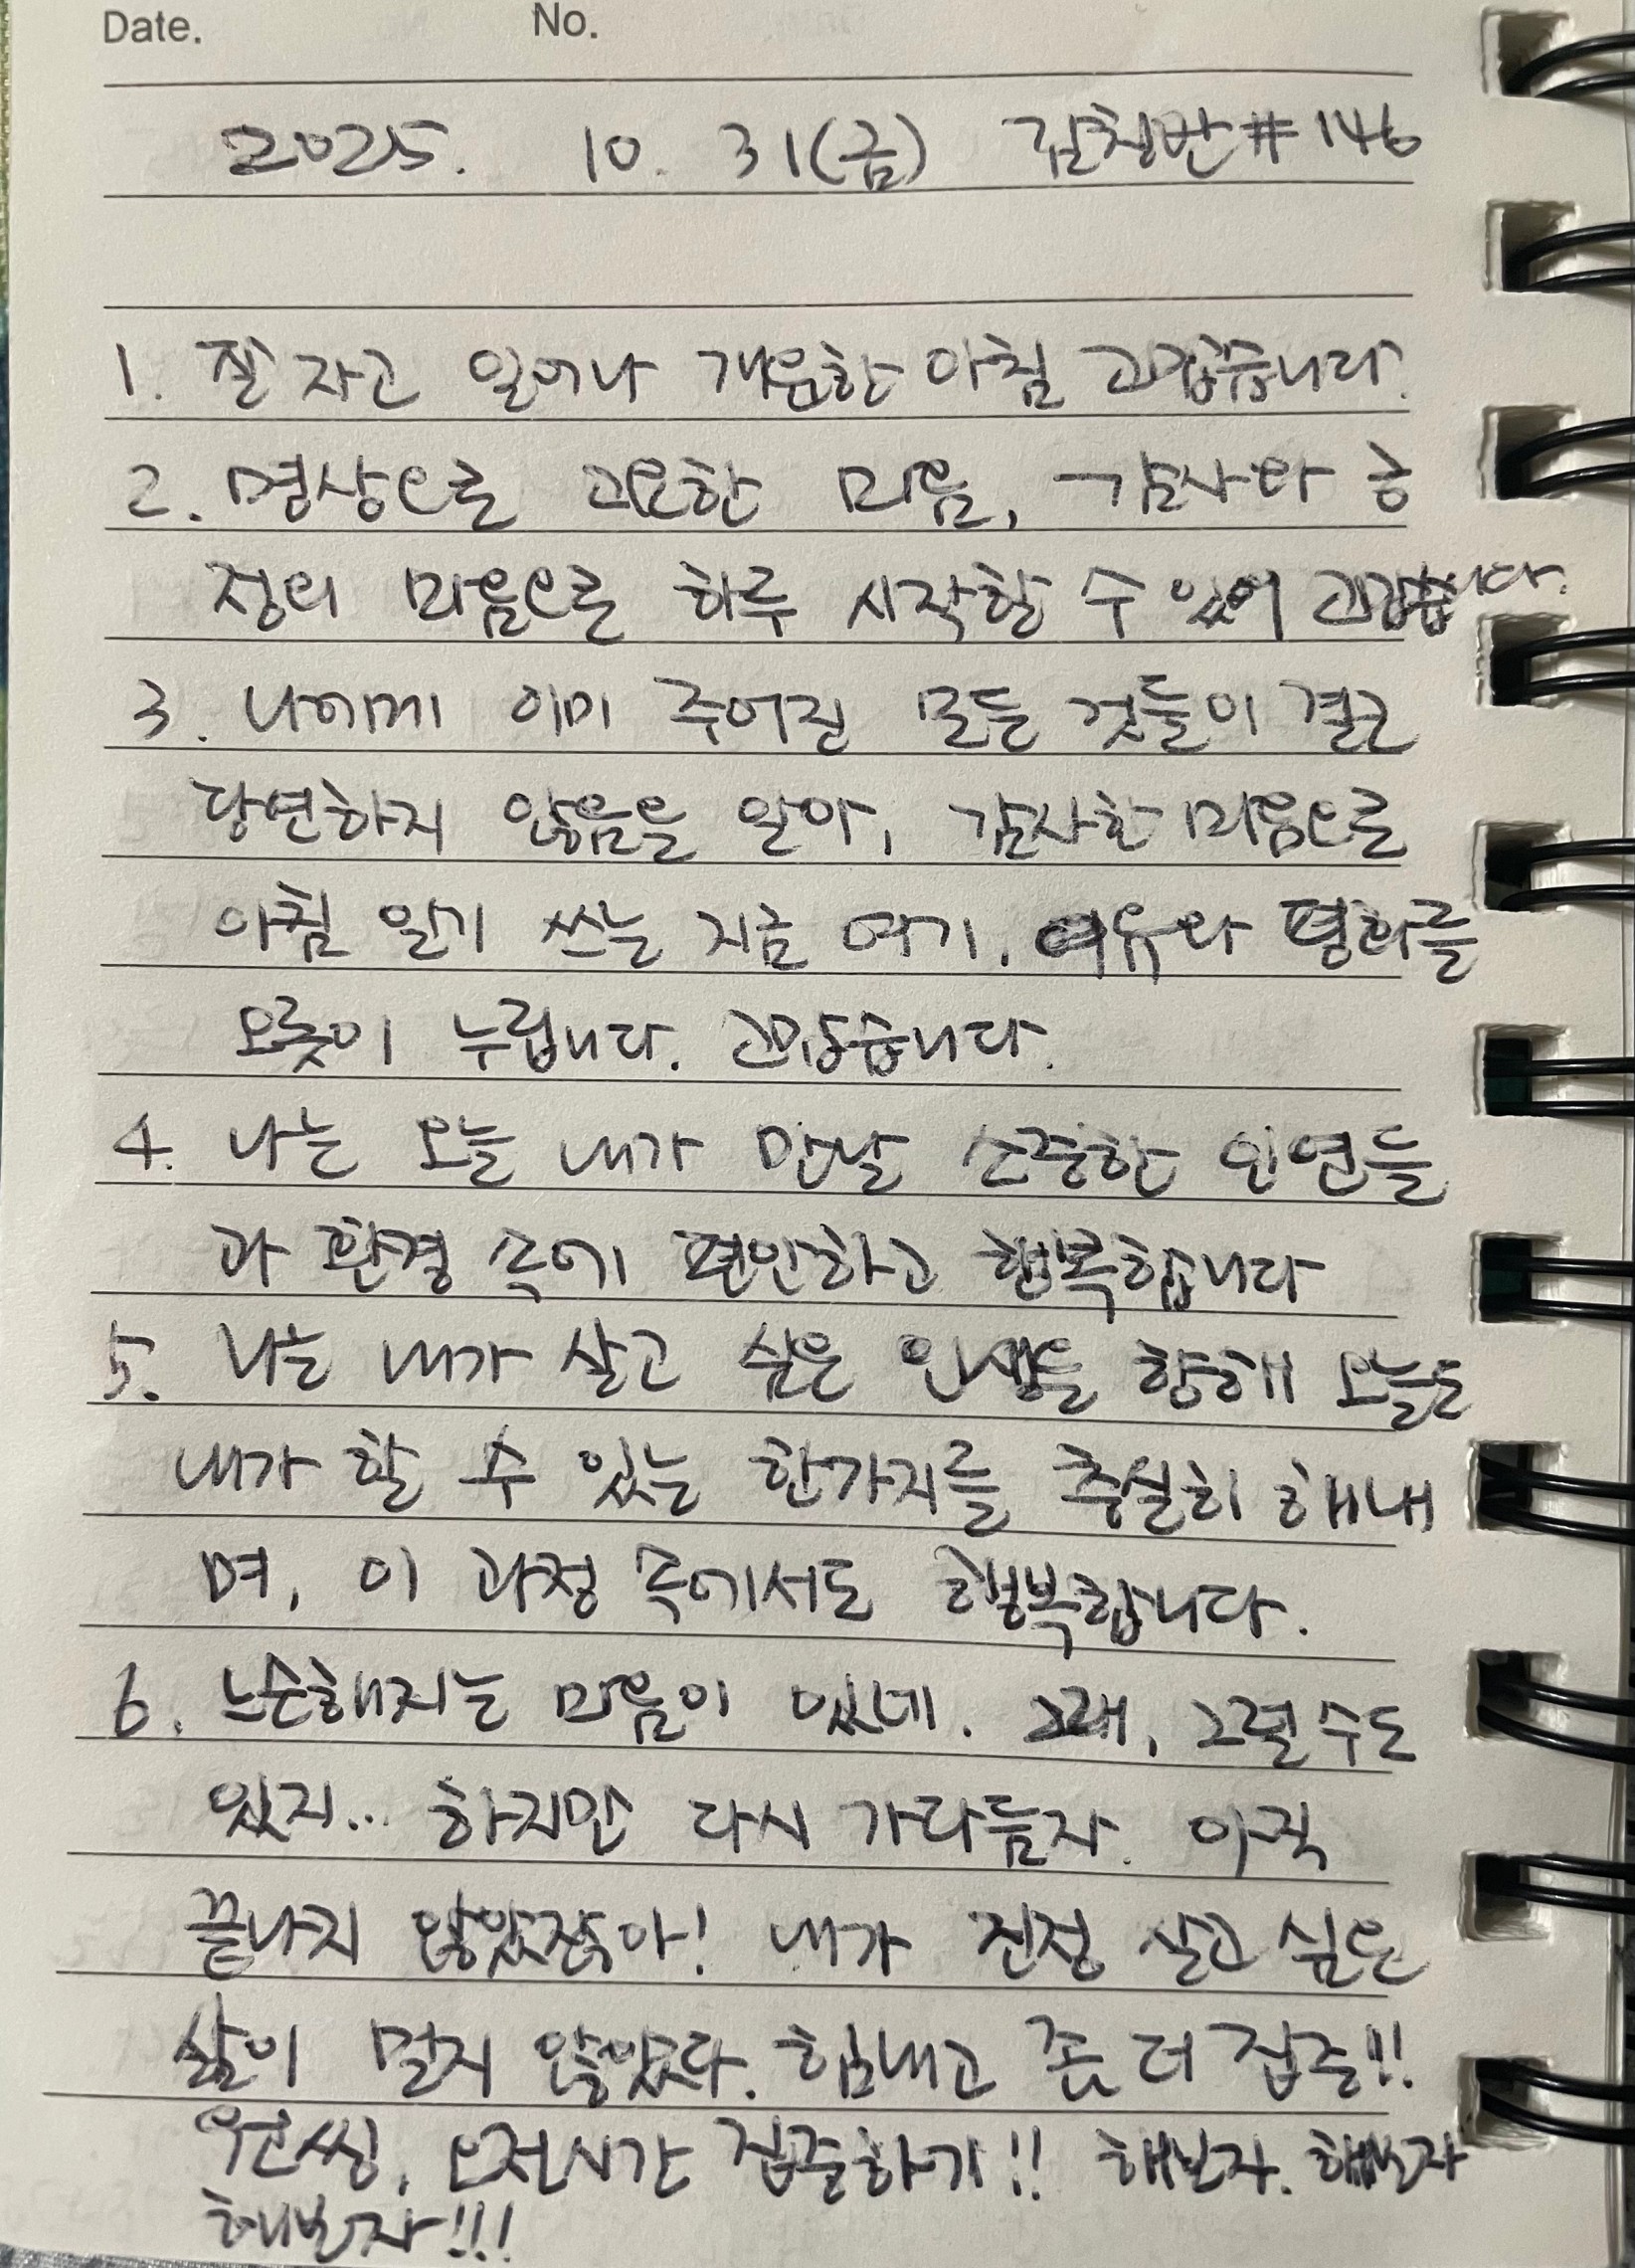 Date. No.
2025. 10. 31(금) 감칭반#146
1. 잘 자고 일어나 개운한 아침 고맙습니다.
2. 명상으로 고요한 마음, 감사와 긍
정의 마음으로 하루 시작할 수 있어 고맙습니다.
3. 나에게 이미 주어진 모든 것들이 결코
당연하지 않음을 알아, 감사한 마음으로
아침 일기 쓰는 지금 여기, 여유와 평화를
오롯이 누립니다. 고맙습니다.
4. 나는 오늘 내가 만날 소중한 인연들
과 환경 속에 편안하고 행복합니다
5. 나는 내가 살고 싶은 인생을 향해 오늘도
내가 할 수 있는 한가지를 충실히 해내
며, 이 과정 속에서도 행복합니다.
6. 느슨해지는 마음이 있네. 그래, 그럴 수도
있지... 하지만 다시 가다듬자. 아직
끝나지 않았잖아! 내가 진정 살고 싶은
삶이 멀지 않았다. 힘내고 좀 더 집중!!
원씽, 오전시간 집중하기!! 해보자. 해보자
해보자!!!